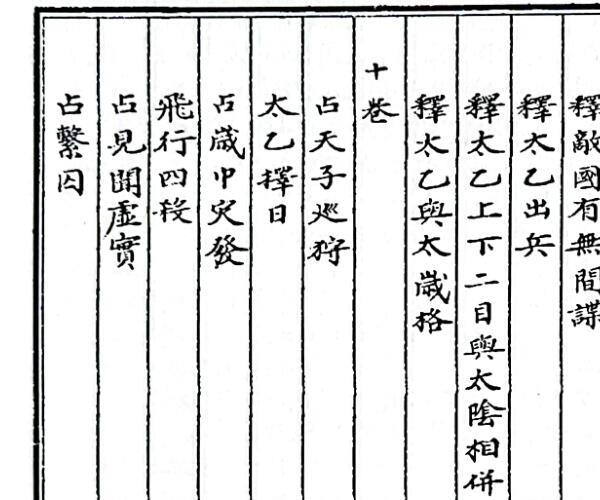 釋敵國有無間諜
釋太乙出兵
釋太乙上下二目與太陰相併
釋太乙與太歲格
十卷
占天子巡狩
太乙擇日
占歲中災發
飛行四殺
占見聞虛實
占繫囚